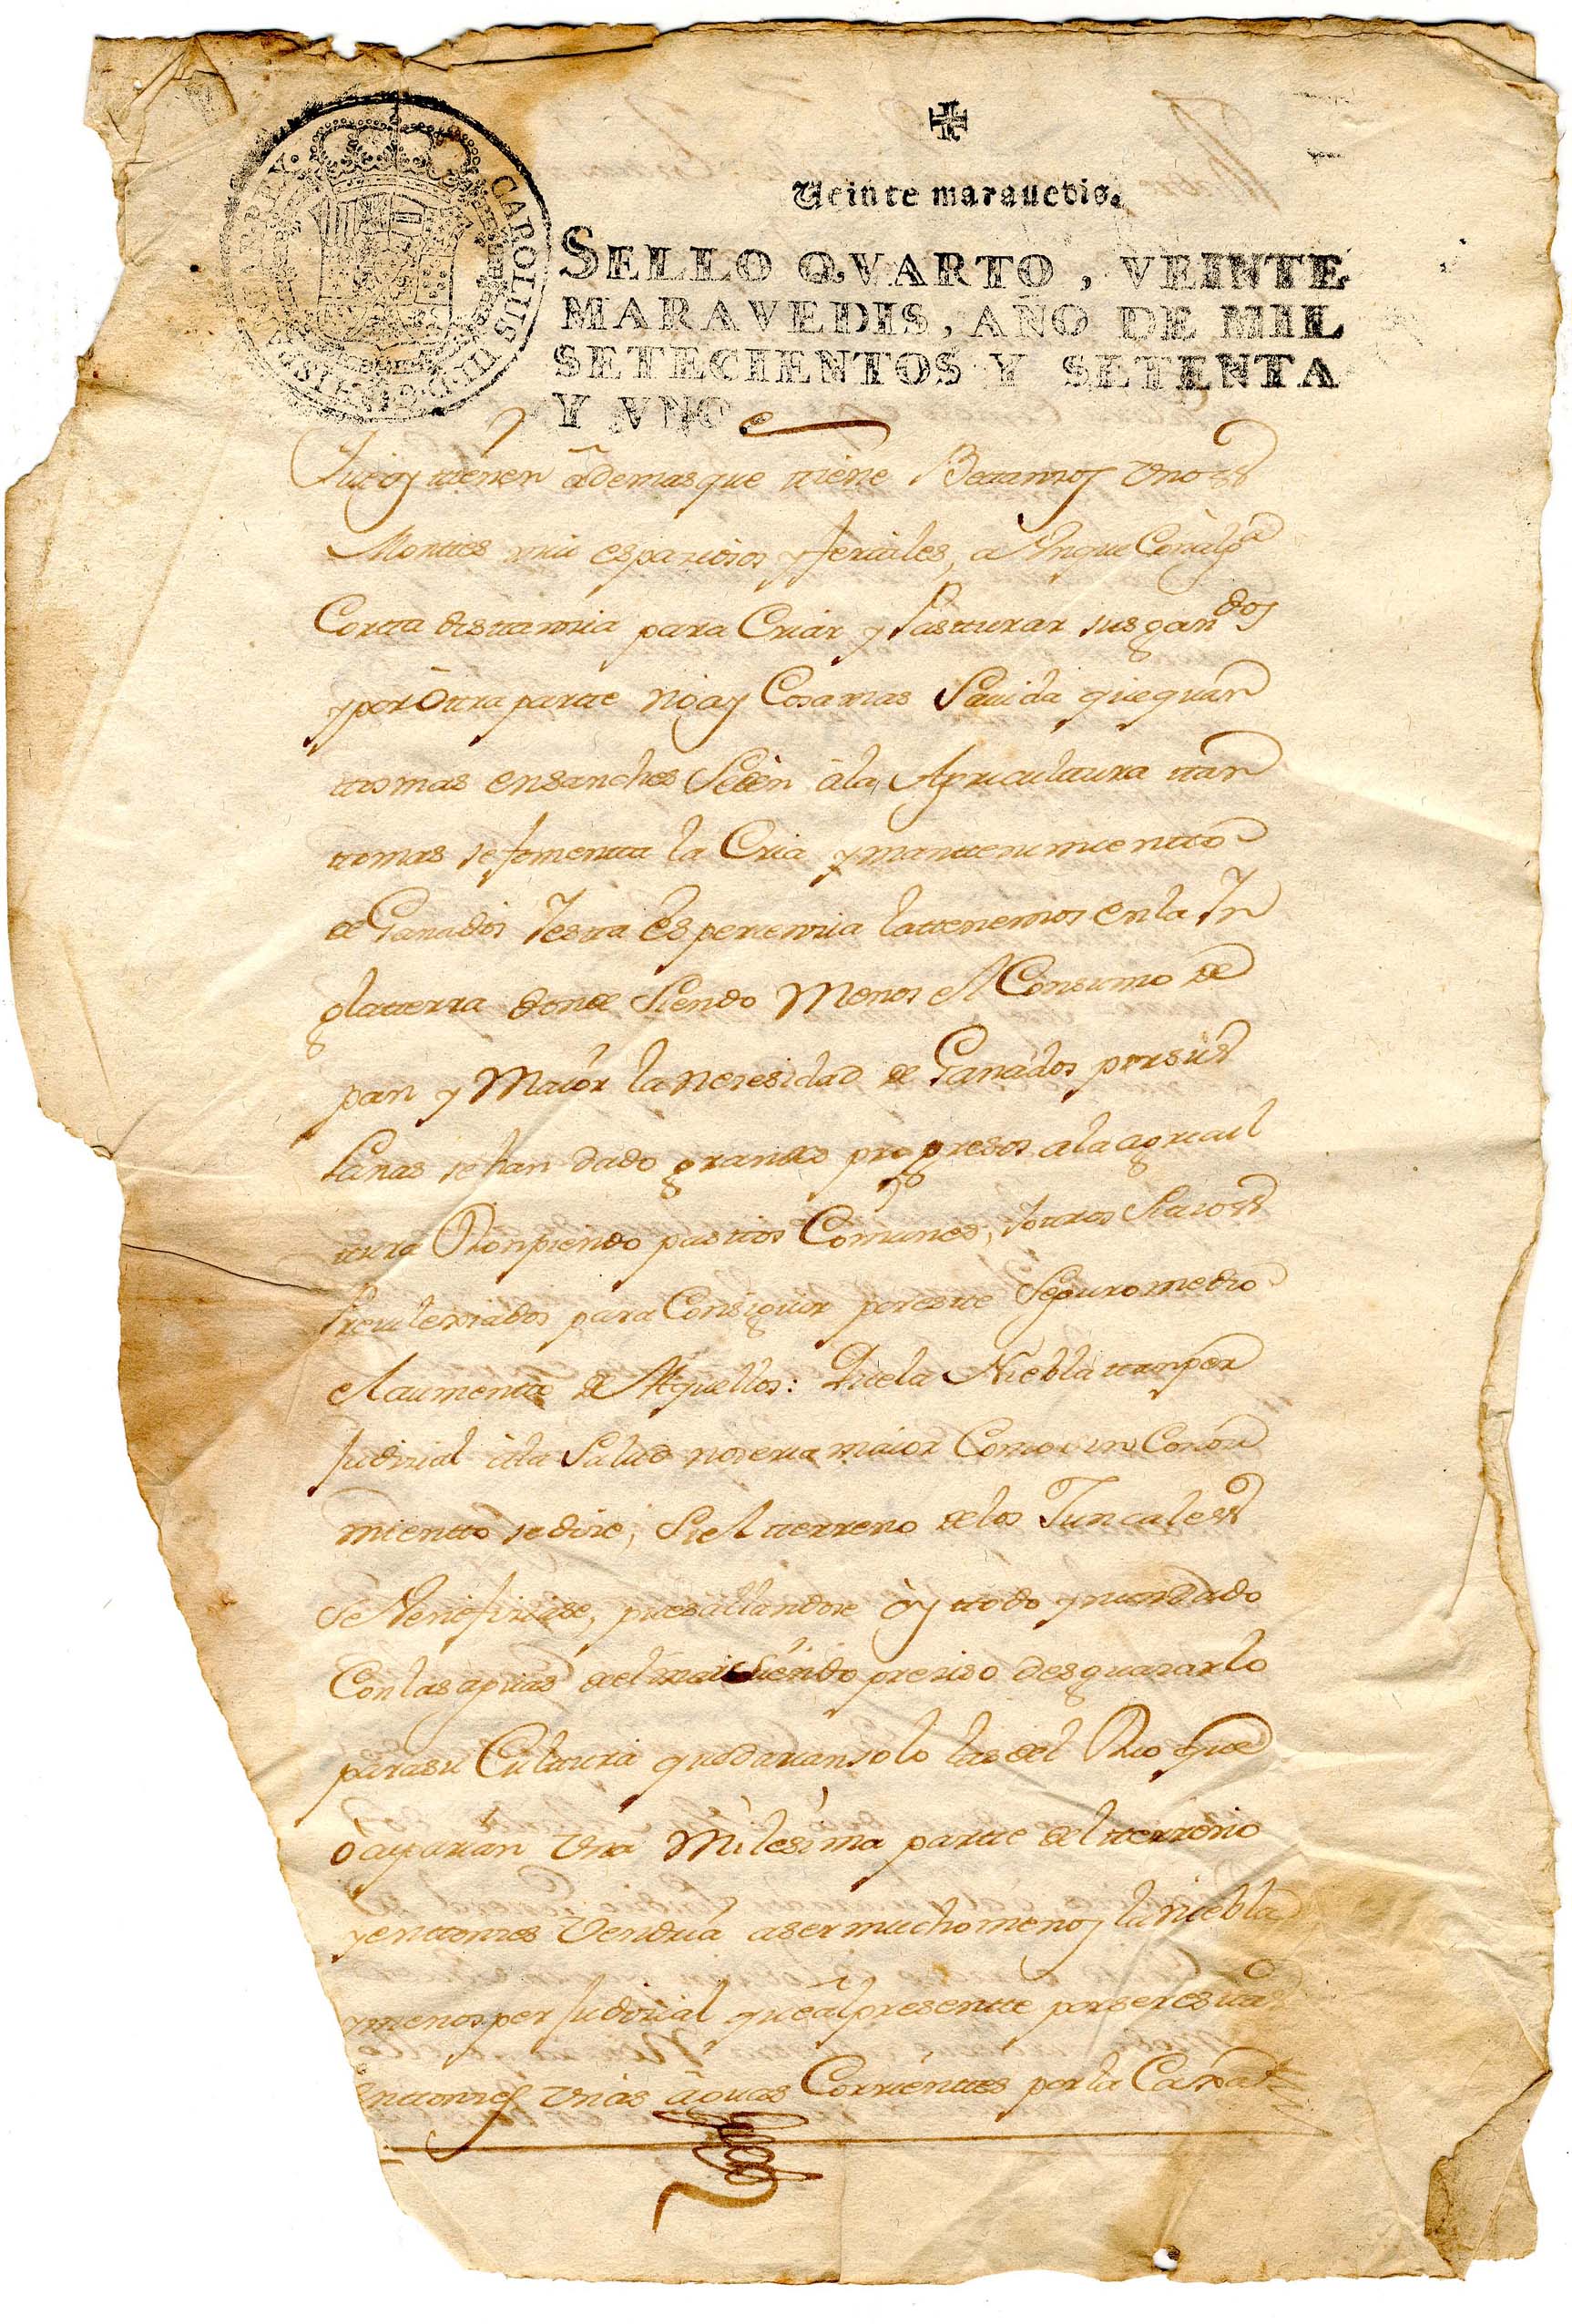 CAROLUS III D G HISP
Veinte maravedis.
SELLO QVARTO, VEINTE
MARAVEDIS, AÑO DE MIL
SETECIENTOS Y SETENTA
Y VNO
que oy ttienen ademas que ttiene Bettanzos Unos
Monttes mui espaciosos y ferttiles, a
Cortta disttanzia para Criar y Pastturar sus gandos
y por Ottra partte no ay Cosa mas Savida que quan
tto mas ensanches Se den â la Agriculttura ttan
tto mas se fomentta la Cria y manttenimientto
de Ganados Y estta Esperienzia la ttenemos en la In
glatterra donde Siendo Menos el Consumo de
pan y Maior la nezesidad de Ganados por sus
Lanas se han dado grandes progresos a la agricul
ttura Ronpiendo pasttos Comunes, y ottros Sittios
Previlexiados para Conseguir por estte Seguro medio
el aumentto de Aquellos: Que la Niebla ttan per
Judizial â la Salud no seria maior Como sin Conozi
mientto se dize, Si el tterreno de los Juncales
Se Venefiziase, pues allandose oy ttodo ynundado
Con las aguas del mar siendo preziso desguazarlo
para su Culttura quedarian solo las del Rio que
Ocuparian Una Milesima partte del tterreno
y enttonzes Vendria a ser mucho menos la niebla
y menos perJudizial que al presentte por ser esttas
enttonzes Unas âguas Corrienttes por la Canal